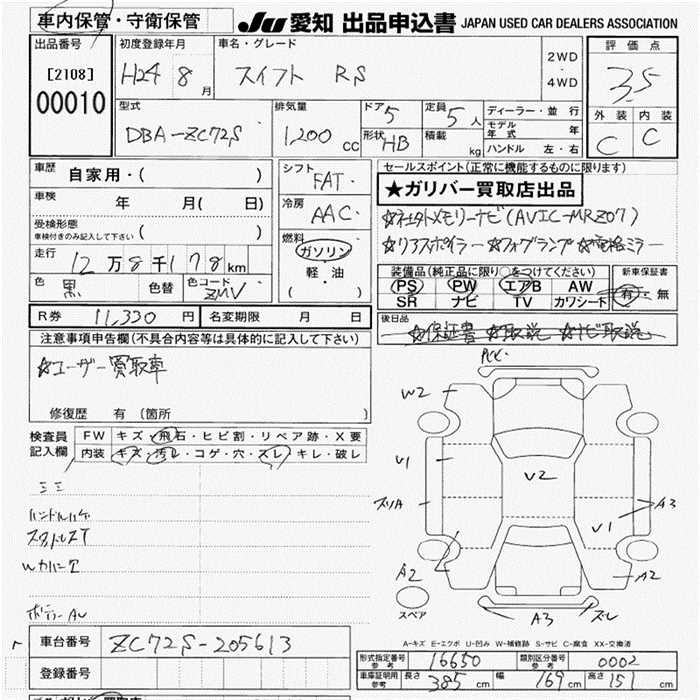 車内保管・守衛保管 JU 愛知 出品申込書 JAPAN USED CAR DEALERS ASSOCIATION
出品番号 初度登録年月 車名・グレード 評価点
[2108] H24 8月 スイフト RS 2WD・4WD 3.5
00010 外装 内装
型式 排気量 ドア 5 定員 5人 ディーラー・並行 C C
DBA-ZC72S 1,200cc 形状 HB 積載 kg モデル年式 年
ハンドル 左・右
車歴 自家用・( ) シフト FAT セールスポイント(正常に機能するものに限ります)
車検 年 月( 日) 冷房 AAC ★ガリバー買取店出品
受検形態 ☆社外メモリーナビ(AVIC-MRZ07)
車検付きのみ記入して下さい ( ) 燃料 ☆リアスポイラー ☆フォグランプ ☆電格ミラー
走行 12万8千178km ガソリン 装備品(純正品に限り○をつけてください) 新車保証書
軽・油 PS PW エアB AW 有・無
色 黒 色替 色コード ZMV ( ) SR ナビ TV カワシート
R券 11,330円 名変期限 月 日 後日品
☆保証書 ☆取説 ☆ナビ取説
注意事項申告欄(不具合内容等は具体的に記入して下さい)
☆ユーザー買取車
修復歴 有(箇所 )
検査員 FW キズ・飛石・ヒビ割・リペア跡・X要
記入欄 内装 キズ・汚レ・コゲ・穴・スレ・キレ・破レ
W2
U1 V2
スリA A3
U1
ハンドルハゲ
A2 A2
スペア A3 スレ
A-キズ E-エクボ U-凹み W-補修跡 S-サビ C-腐食 XX-交換済
車台番号 ZC72S-205613
形式指定番号 参考 16650 類別区分番号 参考 0002
登録番号 車庫証明用 参考 長さ 385cm 幅 169cm 高さ 151cm